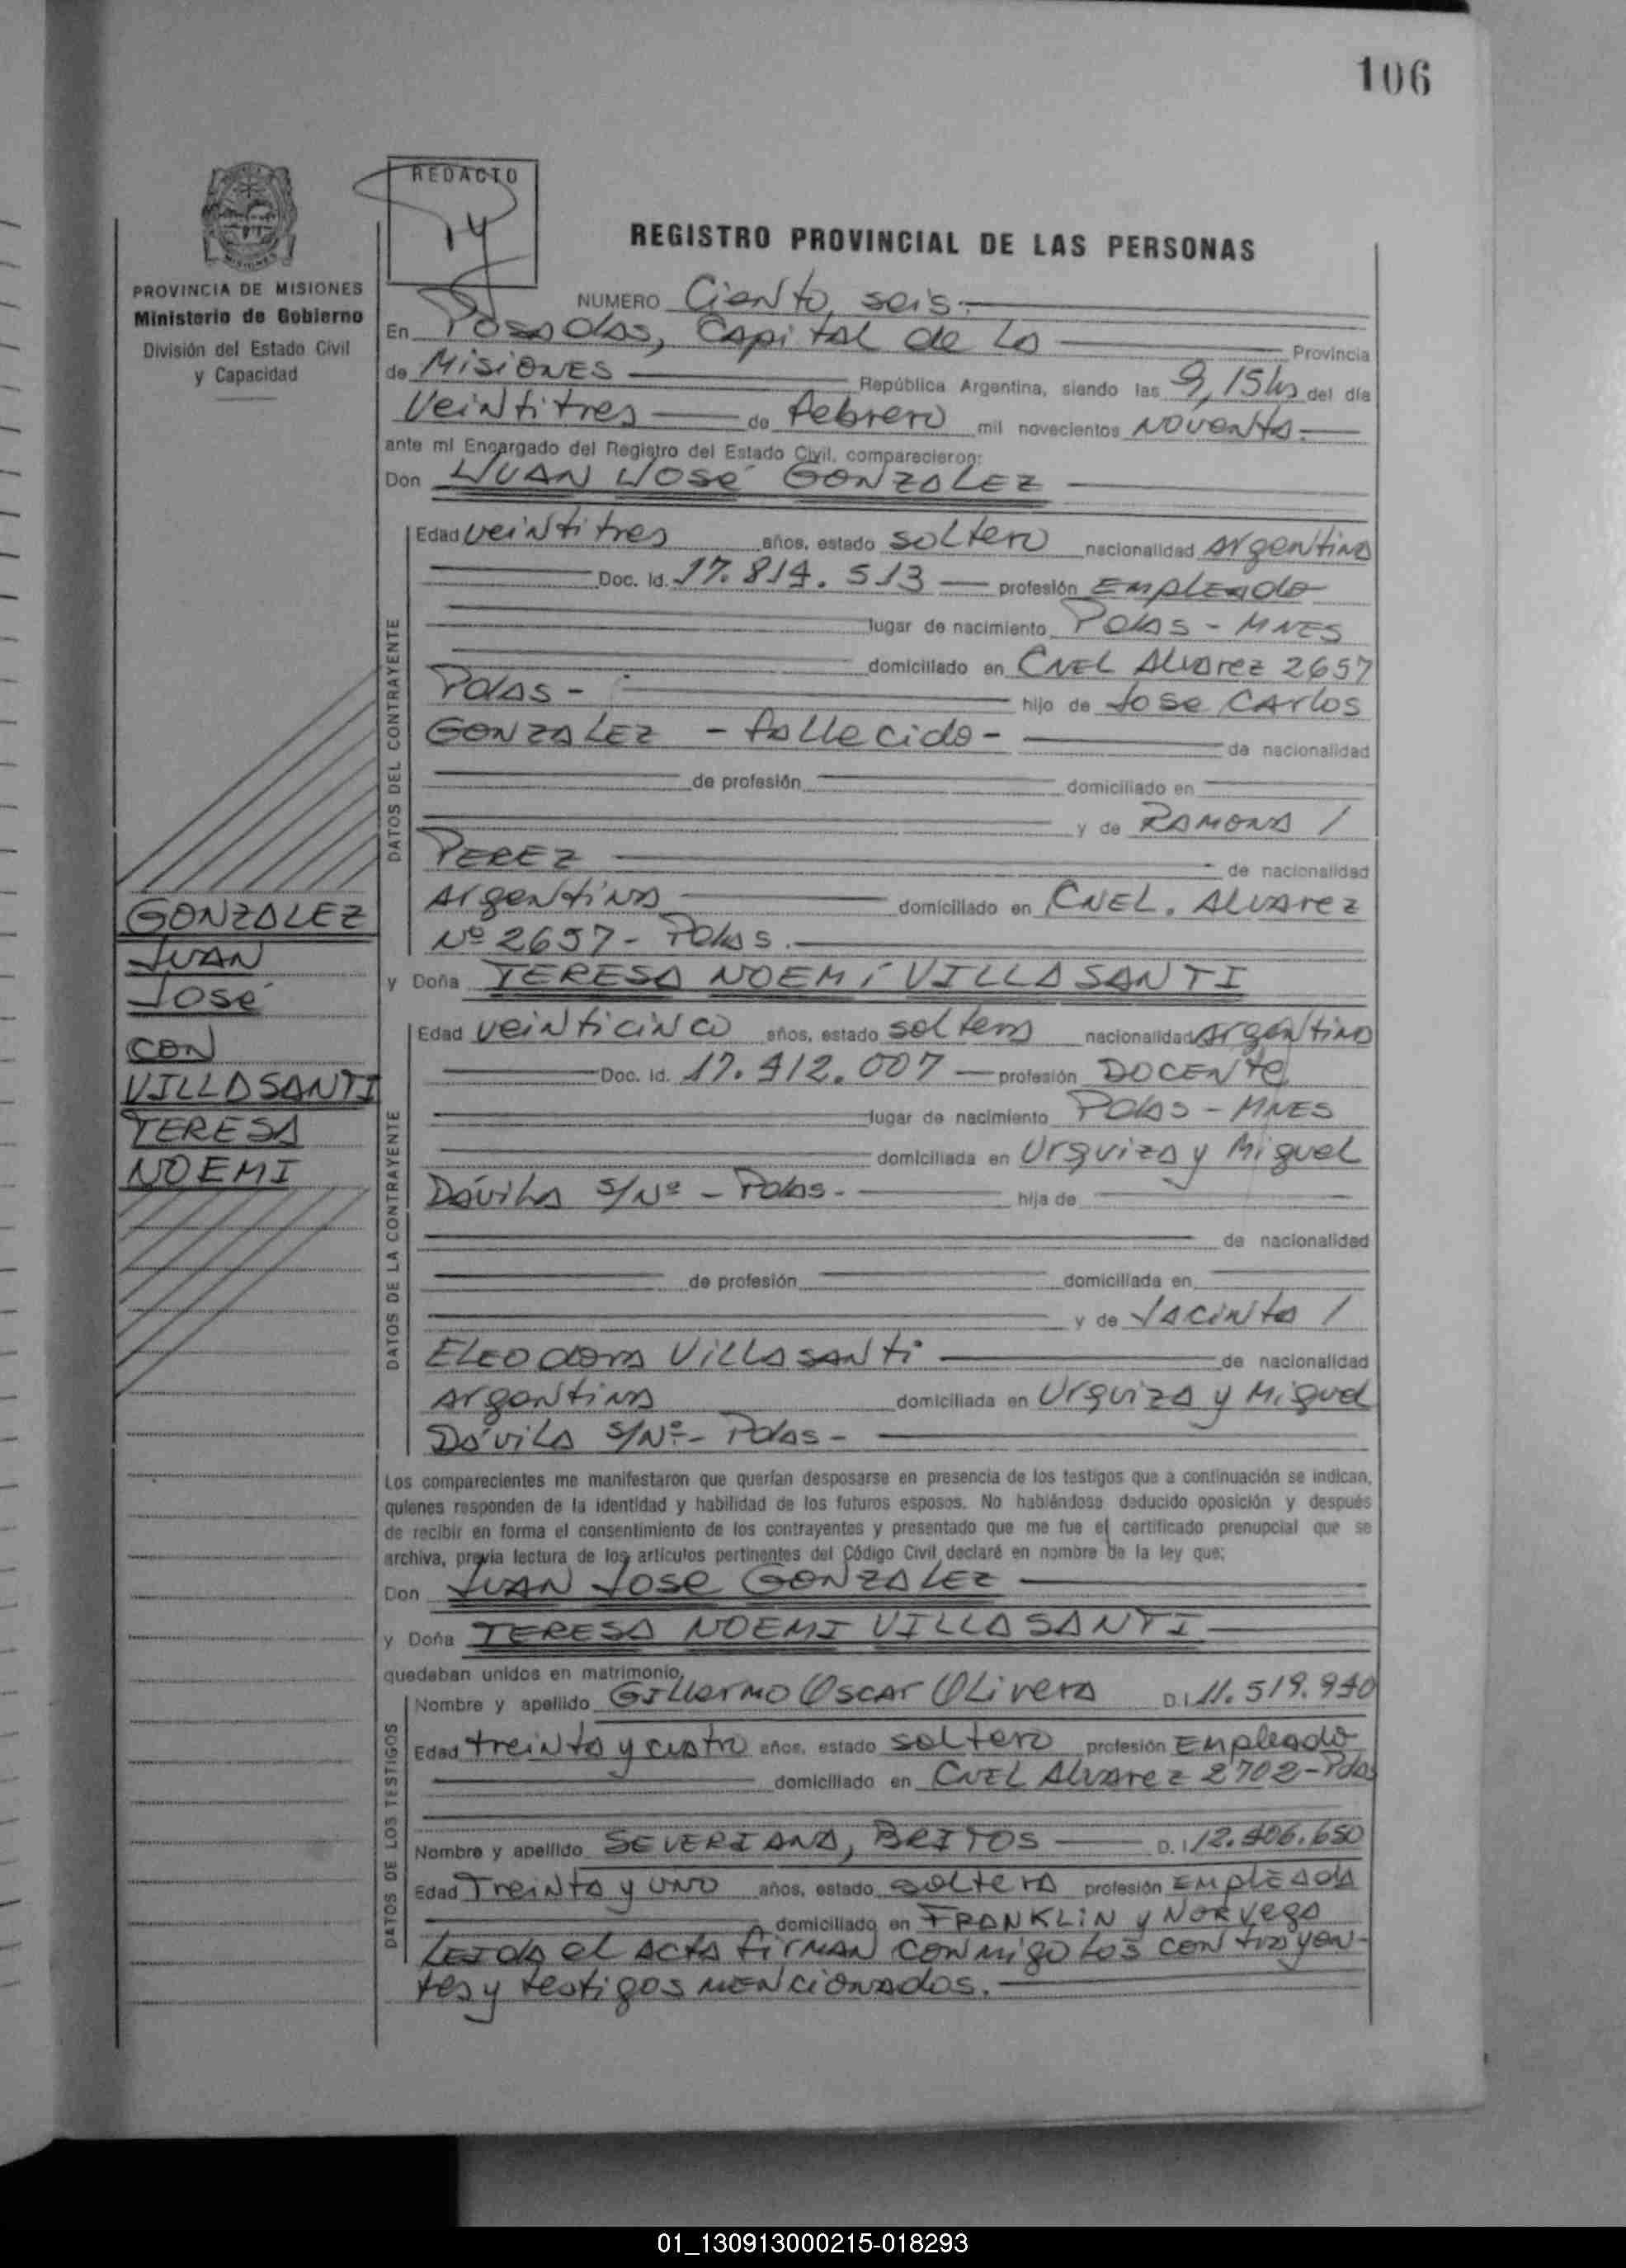 106
REDACTO
REGISTRO PROVINCIAL DE LAS PERSONAS
PROVINCIA DE MISIONES
Ministerio de Gobierno
División del Estado Civil
y Capacidad
NUMERO Ciento seis.
En Posadas, Capital de la Provincia
de Misiones República Argentina, siendo las 9,15 hs del día
Veintitres de febrero mil novecientos noventa.
ante mi Encargado del Registro del Estado Civil, comparecieron:
Don JUAN JOSÉ GONZALEZ
DATOS DEL CONTRAYENTE
Edad veintitres años, estado soltero nacionalidad Argentina
Doc. Id. 17.814.513 profesión Empleado
lugar de nacimiento Pdas - MNES
domiciliado en CNEL Alvarez 2657
Pdas - hijo de Jose Carlos
GONZALEZ - fallecido - de nacionalidad
de profesión domiciliado en
y de RAMONA /
PEREZ de nacionalidad
Argentina domiciliado en CNEL. Alvarez
Nº 2657 - Pdas.
GONZALEZ
JUAN
JOSÉ
CON
VILLASANTI
TERESA
NOEMI
y Doña TERESA NOEMÍ VILLASANTI
DATOS DE LA CONTRAYENTE
Edad veinticinco años, estado soltera nacionalidad Argentina
Doc. Id. 17.412.007 profesión DOCENTE
lugar de nacimiento Pdas - MNES
domiciliada en Urquiza y Miguel
Dávila S/Nº - Pdas. hija de
de nacionalidad
de profesión domiciliada en
y de Jacinta /
ELEODORA VILLASANTI de nacionalidad
Argentina domiciliada en Urquiza y Miguel
Dávila S/Nº - Pdas -
Los comparecientes me manifestaron que querían desposarse en presencia de los testigos que a continuación se indican,
quienes responden de la identidad y habilidad de los futuros esposos. No habiéndose deducido oposición y después
de recibir en forma el consentimiento de los contrayentes y presentado que me fue el certificado prenupcial que se
archiva, previa lectura de los artículos pertinentes del Código Civil declaré en nombre de la ley que:
Don JUAN JOSE GONZALEZ
y Doña TERESA NOEMI VILLASANTI
quedaban unidos en matrimonio.
DATOS DE LOS TESTIGOS
Nombre y apellido Guillermo Oscar Olivera D.I 11.519.940
Edad treinta y cuatro años, estado soltero profesión Empleado
domiciliado en CNEL Alvarez 2702 - Pdas
Nombre y apellido SEVERIANA, BRITOS D.I 12.406.650
Edad Treinta y uno años, estado soltera profesión Empleada
domiciliado en FRANKLIN y Noruega
LEIDA el ACTA firman conmigo los contrayen-
tes y testigos mencionados.
01_130913000215-018293